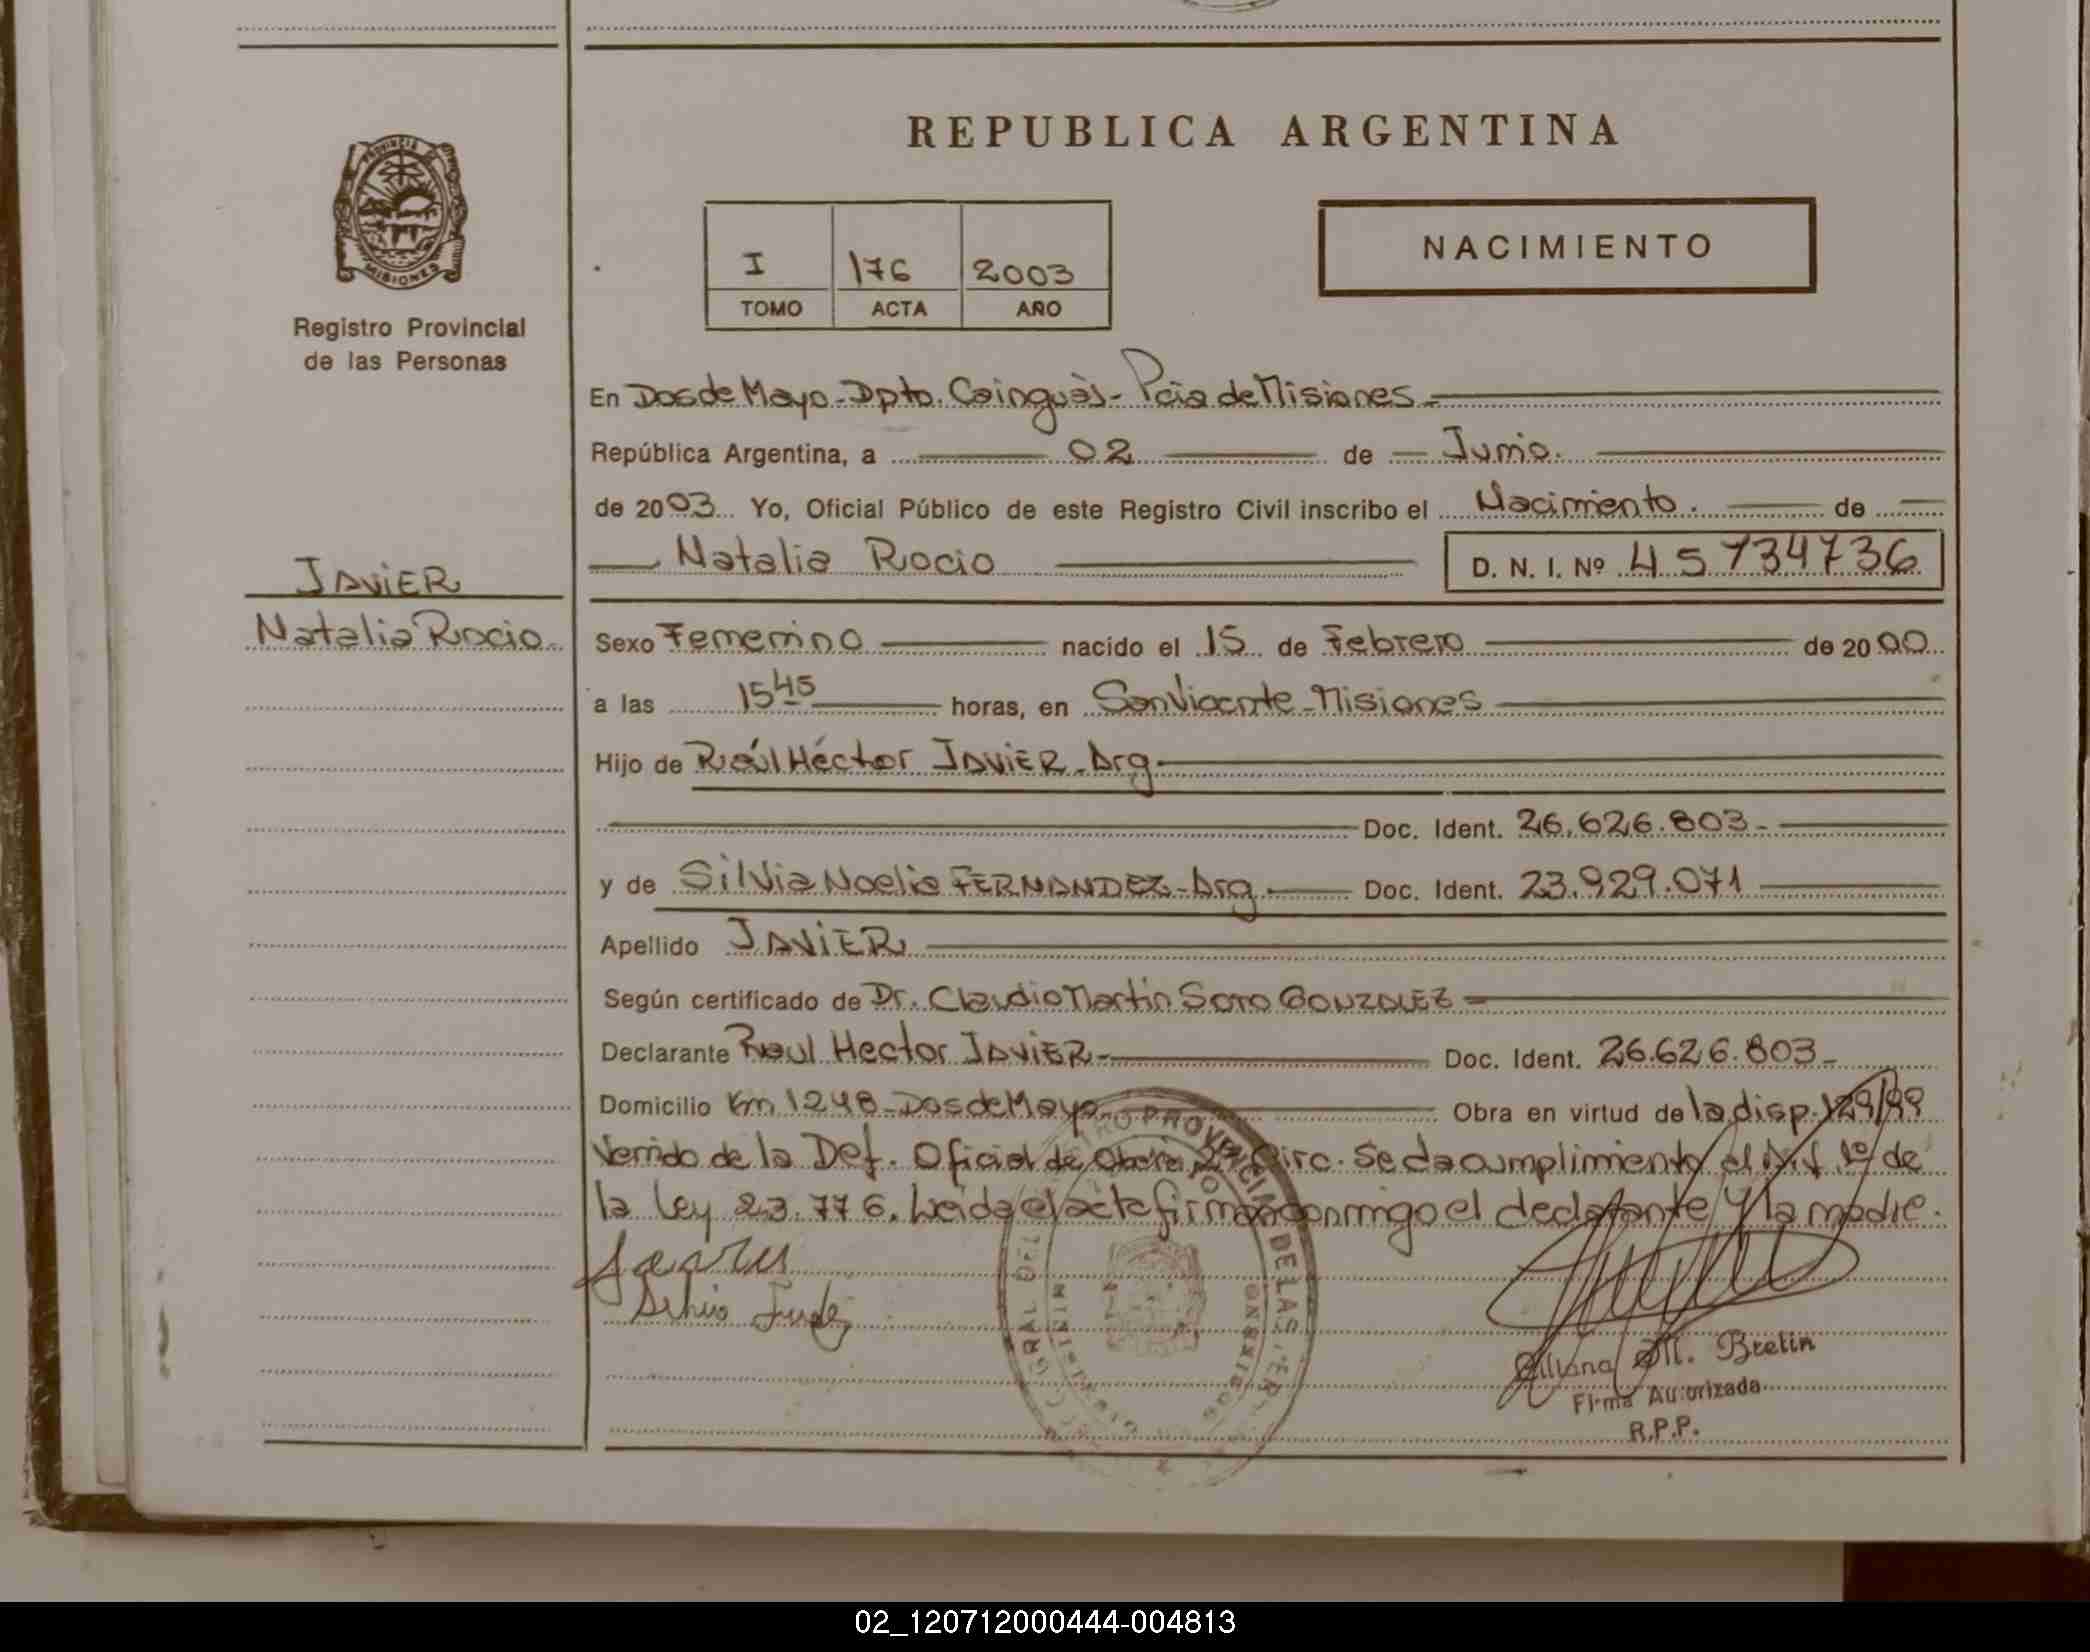 REPUBLICA ARGENTINA
PROVINCIA DE
MISIONES
Registro Provincial
de las Personas
NACIMIENTO
I 176 2003
TOMO ACTA AÑO
En Dos de Mayo - Dpto. Cainguás - Pcia de Misiones
República Argentina, a 02 de Junio.
de 2003 Yo, Oficial Público de este Registro Civil inscribo el Nacimiento. de
Natalia Rocio D. N. I. Nº 45734736
JAVIER
Natalia Rocio
Sexo Femenino nacido el 15 de Febrero de 2000
a las 15 45 horas, en San Vicente - Misiones
Hijo de Raúl Héctor JAVIER - Arg
Doc. Ident. 26.626.803 -
y de Silvia Noelia FERNANDEZ - Arg. Doc. Ident. 23.929.071
Apellido JAVIER
Según certificado de Dr. Claudio Martin Soto GONZALEZ -
Declarante Raul Hector JAVIER - Doc. Ident. 26.626.803 -
Domicilio Km 1248 - Dos de Mayo Obra en virtud de la disp. 129/99
Venido de la Def. Oficial de Oberá 2º Circ. Se da cumplimiento al Art 1º de
la Ley 23.776. Leida el acta firman conmigo el declarante y la madre.
PROVINCIAL DE LAS
MISIONES
Liliana M. Bretin
Firma Autorizada
R.P.P.
02_120712000444-004813